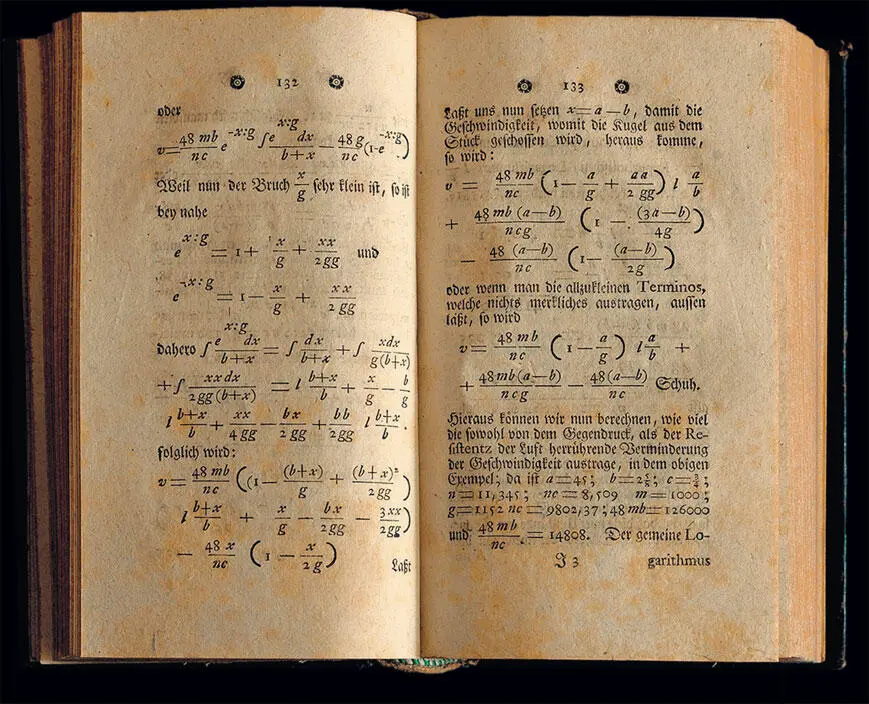 132
oder
v=48 mb/nc e^-x:g ∫e^x:g dx/b+x − 48 g/nc (1-e^-x:g)
Weil nun der Bruch x/g ſehr klein iſt, ſo iſt
bey nahe
e^x:g = 1 + x/g + xx/2gg und
e^-x:g = 1 − x/g + xx/2gg
dahero ∫e^x:g dx/b+x = ∫dx/b+x + ∫xdx/g(b+x)
+∫xxdx/2gg(b+x) = l b+x/b + x/g − b/g
l b+x/b + xx/4gg − bx/2gg + bb/2gg l b+x/b.
folglich wird:
v=48 mb/nc ((1−(b+x)/g + (b+x)²/2gg)
l b+x/b + x/g − bx/2gg − 3xx/2gg)
− 48 x/nc (1 − x/2g)
Laßt
133
Laßt uns nun ſetzen x=a−b, damit die
Geſchwindigkeit, womit die Kugel aus dem
Stück geſchoſſen wird, heraus komme,
ſo wird:
v = 48mb/nc (1− a/g + aa/2gg) l a/b
+ 48mb(a−b)/ncg (1 − (3a−b)/4g)
− 48 (a−b)/nc (1− (a−b)/2g)
oder wenn man die allzukleinen Terminos,
welche nichts merkliches austragen, auſſen
läßt, ſo wird
v = 48 mb/nc (1− a/g) l a/b +
+ 48mb(a−b)/ncg − 48(a−b)/nc Schuh.
Hieraus können wir nun berechnen, wie viel
die ſowohl von dem Gegendruck, als der Re-
ſiſtentz der Luft herrührende Verminderung
der Geſchwindigkeit austrage, in dem obigen
Exempel; da iſt a=45; b=2⅝; c=¾;
n=11,345; nc=8,509 m=1000;
g=1152 nc=9802,37; 48 mb=126000
und 48 mb/nc = 14808. Der gemeine Lo-
J 3 garithmus